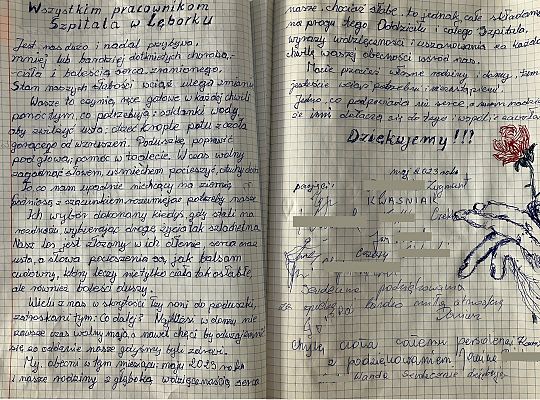 Wszystkim pracownikom
Szpitala w Lęborku
Jest nas dużo i nadal przybywa,
mniej lub bardziej dotkniętych chorobą,
ciała i boleścią serca zranionego.
Stan naszych słabości wciąż ulega zmianie
Wasze to czynią ręce gotowe w każdej chwili
pomóc tym, co potrzebują: szklanki wody,
aby zwilżyć usta, otrzeć krople potu z czoła
gorącego od wzruszeń. Poduszkę poprawić
pod głową; pomóc w toalecie. W czas wolny
zagadnąć słowem, uśmiechem pocieszyć,
To co nam upadnie niechcący na ziemię
podnoszą z zrozumieniem potrzeby nasze
Ich wybór dokonany kiedyś, gdy stali na
rozdrożu, wybierając drogę życia tak szlachetną.
Nasz los jest złożony w ich dłonie, serca oraz
usta, a słowa pocieszenia są, jak balsam
cudowny, który leczy nie tylko ciała tak osłabłe,
ale również boleści duszy.
Wielu z nas w skrytości łzy roni do poduszki,
zatroskani tym: Co dalej? Myśliści w domu nie
zawsze czas wolny mają, a nawet chęci by odwzajemnić
się, co oddanie nasze gdyśmy byli zdrowi.
My, obecni w tym miesiącu: maju 2023 roku
i nasze rodziny z głęboką wdzięcznością serca
nasze, chociaż słabe, to jednak całe składamy
na progu tego Oddziału i całego Szpitala,
wyrazy wdzięczności i uszanowania za każdą
chwilę waszej obecności wśród nas.
Macie przecież własne rodziny i domy, tam
jesteście wciąż potrzebni i
Jedno, co podpowiada mi serce a mam nadzieję
że inni dołączą się do tego i wspól
Dziękujemy !!!
maj 2023 roku
pacjenci:
Zygmunt
KWAŚNIAK
Serdeczne podziękowania
za opiekę i bardzo miłą atmosferę
Danuta
Chylę czoła całemu personelowi
z podziękowaniem
Wanda Serdecznie dziękuję